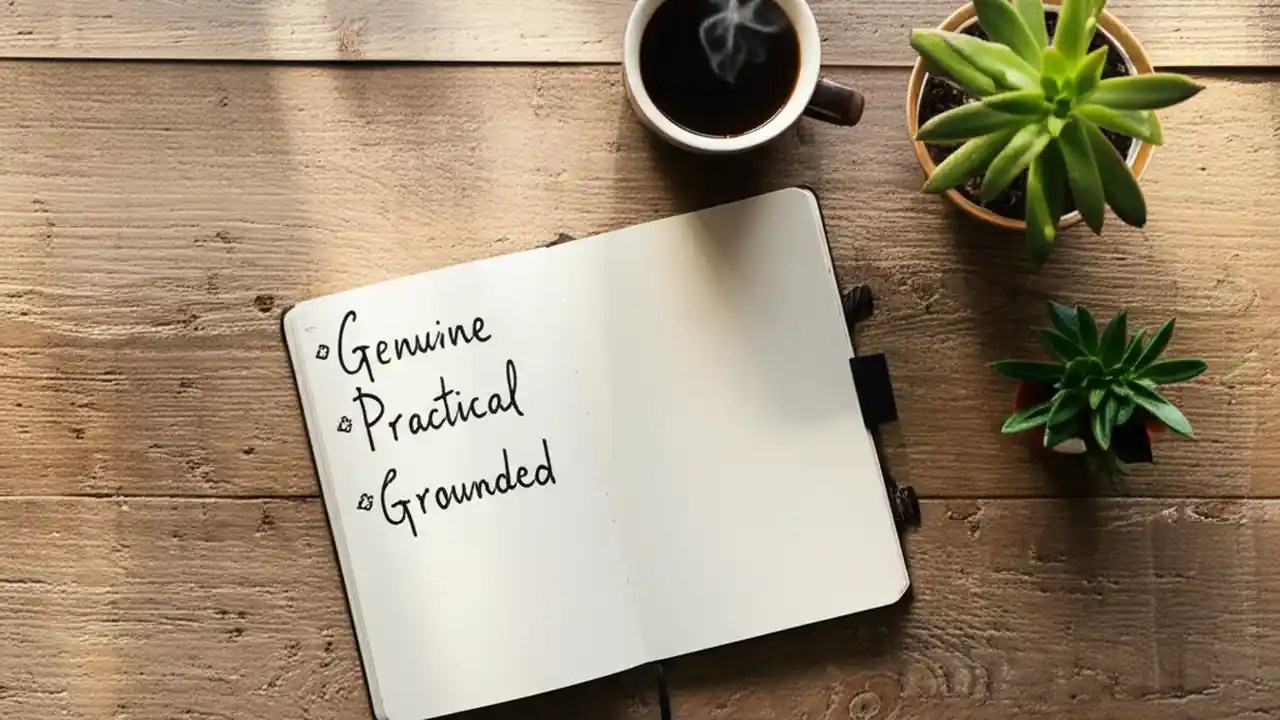 Genuine
Practical
Grounded